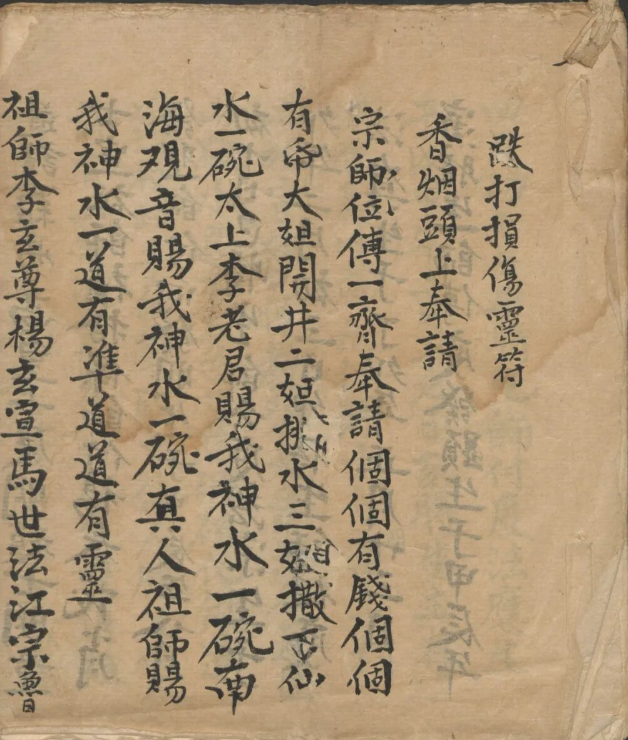 跌打損傷靈符
香烟頭上奉請
宗師位傳一齊奉請個個有錢個個
有帋大姐開井二姐挑水三姐撒下仙
水一碗太上李老君賜我神水一碗南
海观音賜我神水一碗真人祖師賜
我神水一道有準道道有靈
祖師李玄尊楊玄宣馬世法江宗魯